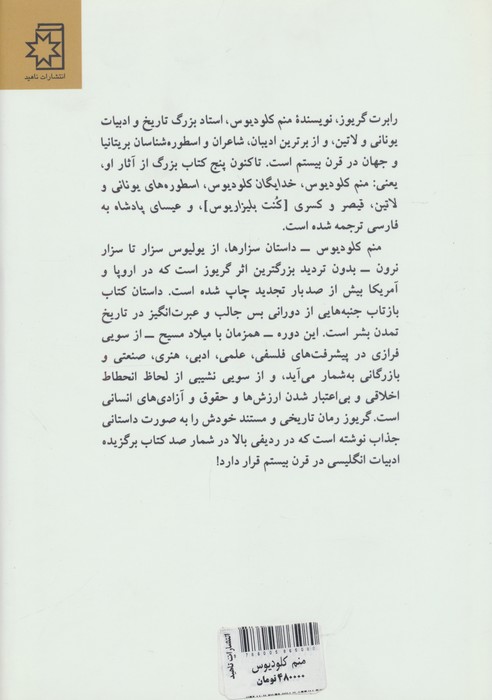 انتشارات ناهید
رابرت گریوز، نویسندهٔ منم کلودیوس، استاد بزرگ تاریخ و ادبیات
یونانی و لاتین، و از برترین ادیبان، شاعران و اسطوره‌شناسان بریتانیا
و جهان در قرن بیستم است. تاکنون پنج کتاب بزرگ از آثار او،
یعنی: منم کلودیوس، خدایگان کلودیوس، اسطوره‌های یونانی و
لاتین، قیصر و کسری [کُنت بلیزاریوس]، و عیسای پادشاه به
فارسی ترجمه شده است.
منم کلودیوس ــ داستان سزارها، از یولیوس سزار تا سزار
نرون ــ بدون تردید بزرگترین اثر گریوز است که در اروپا و
آمریکا بیش از صدبار تجدید چاپ شده است. داستان کتاب
بازتاب جنبه‌هایی از دورانی بس جالب و عبرت‌انگیز در تاریخ
تمدن بشر است. این دوره ــ همزمان با میلاد مسیح ــ از سویی
فرازی در پیشرفت‌های فلسفی، علمی، ادبی، هنری، صنعتی و
بازرگانی به‌شمار می‌آید، و از سویی نشیبی از لحاظ انحطاط
اخلاقی و بی‌اعتبار شدن ارزش‌ها و حقوق و آزادی‌های انسانی
است. گریوز رمان تاریخی و مستند خودش را به صورت داستانی
جذاب نوشته است که در ردیفی بالا در شمار صد کتاب برگزیده
ادبیات انگلیسی در قرن بیستم قرار دارد!
انتشارات ناهید
منم کلودیوس
۴۸۰۰۰۰ تومان